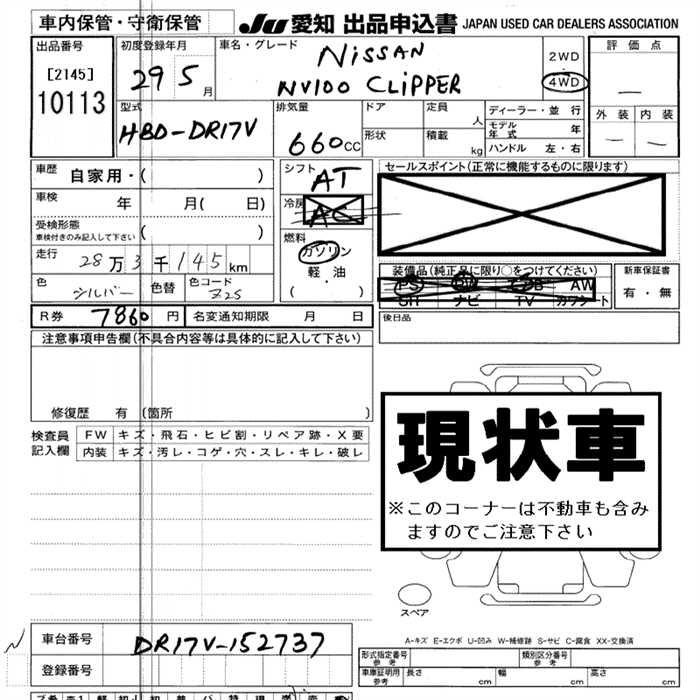 車内保管・守衛保管
JU 愛知 出品申込書 JAPAN USED CAR DEALERS ASSOCIATION
出品番号
[2145]
10113
初度登録年月
29 5 月
車名・グレード
NISSAN
NV100 CLIPPER
2WD
4WD
評価点
―
外装 内装
― ―
型式
HBD-DR17V
排気量
660cc
ドア
形状
定員 人
積載 kg
ディーラー・並行
モデル年式 年
ハンドル 左・右
車歴 自家用・( )
車検 年 月( 日)
受検形態
車検付きのみ記入して下さい ( )
走行 28万3千145km
色 シルバー 色替 色コード Z2S
シフト AT
冷房 AC
燃料
ガソリン
軽・油
( )
セールスポイント(正常に機能するものに限ります)
装備品(純正品に限り○をつけてください)
PS PW AB AW
SR ナビ TV カワシート
新車保証書
有・無
R券 7860 円 名変通知期限 月 日
後日品
注意事項申告欄(不具合内容等は具体的に記入して下さい)
修復歴 有 (箇所 )
検査員記入欄
FW キズ・飛石・ヒビ割・リペア跡・X要
内装 キズ・汚レ・コゲ・穴・スレ・キレ・破レ
現状車
※このコーナーは不動車も含み
ますのでご注意下さい
スペア
A-キズ E-エクボ U-凹み W-補修跡 S-サビ C-腐食 XX-交換済
車台番号 DR17V-152737
登録番号
形式指定番号 参考
類別区分番号 参考
車庫証明用 参考 長さ cm 幅 cm 高さ cm